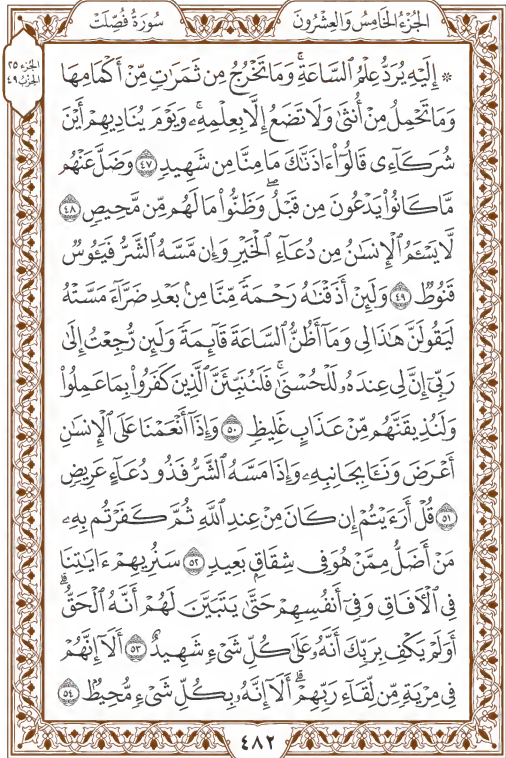 الجُزْءُ الخَامِسُ وَالعِشْرُونَ
سُورَةُ فُصِّلَتْ
الجزء ٢٥
الحزب ٤٩
۞ إِلَيْهِ يُرَدُّ عِلْمُ ٱلسَّاعَةِۚ وَمَا تَخْرُجُ مِن ثَمَرَٰتٖ مِّنْ أَكْمَامِهَا
وَمَا تَحْمِلُ مِنْ أُنثَىٰ وَلَا تَضَعُ إِلَّا بِعِلْمِهِۦۚ وَيَوْمَ يُنَادِيهِمْ أَيْنَ
شُرَكَآءِي قَالُوٓاْ ءَاذَنَّٰكَ مَا مِنَّا مِن شَهِيدٖ ٤٧ وَضَلَّ عَنْهُم
مَّا كَانُواْ يَدْعُونَ مِن قَبْلُۖ وَظَنُّواْ مَا لَهُم مِّن مَّحِيصٖ ٤٨
لَّا يَسْـَٔمُ ٱلْإِنسَٰنُ مِن دُعَآءِ ٱلْخَيْرِ وَإِن مَّسَّهُ ٱلشَّرُّ فَيَـُٔوسٞ
قَنُوطٞ ٤٩ وَلَئِنْ أَذَقْنَٰهُ رَحْمَةٗ مِّنَّا مِنۢ بَعْدِ ضَرَّآءَ مَسَّتْهُ
لَيَقُولَنَّ هَٰذَا لِي وَمَآ أَظُنُّ ٱلسَّاعَةَ قَآئِمَةٗ وَلَئِن رُّجِعْتُ إِلَىٰ
رَبِّيٓ إِنَّ لِي عِندَهُۥ لَلْحُسْنَىٰۚ فَلَنُنَبِّئَنَّ ٱلَّذِينَ كَفَرُواْ بِمَا عَمِلُواْ
وَلَنُذِيقَنَّهُم مِّنْ عَذَابٍ غَلِيظٖ ٥٠ وَإِذَآ أَنْعَمْنَا عَلَى ٱلْإِنسَٰنِ
أَعْرَضَ وَنَـَٔا بِجَانِبِهِۦ وَإِذَا مَسَّهُ ٱلشَّرُّ فَذُو دُعَآءٍ عَرِيضٖ
٥١ قُلْ أَرَءَيْتُمْ إِن كَانَ مِنْ عِندِ ٱللَّهِ ثُمَّ كَفَرْتُم بِهِۦ
مَنْ أَضَلُّ مِمَّنْ هُوَ فِي شِقَاقِۭ بَعِيدٖ ٥٢ سَنُرِيهِمْ ءَايَٰتِنَا
فِي ٱلْأٓفَاقِ وَفِيٓ أَنفُسِهِمْ حَتَّىٰ يَتَبَيَّنَ لَهُمْ أَنَّهُ ٱلْحَقُّۗ
أَوَلَمْ يَكْفِ بِرَبِّكَ أَنَّهُۥ عَلَىٰ كُلِّ شَيْءٖ شَهِيدٌ ٥٣ أَلَآ إِنَّهُمْ
فِي مِرْيَةٖ مِّن لِّقَآءِ رَبِّهِمْۗ أَلَآ إِنَّهُۥ بِكُلِّ شَيْءٖ مُّحِيطُۢ ٥٤
٤٨٢